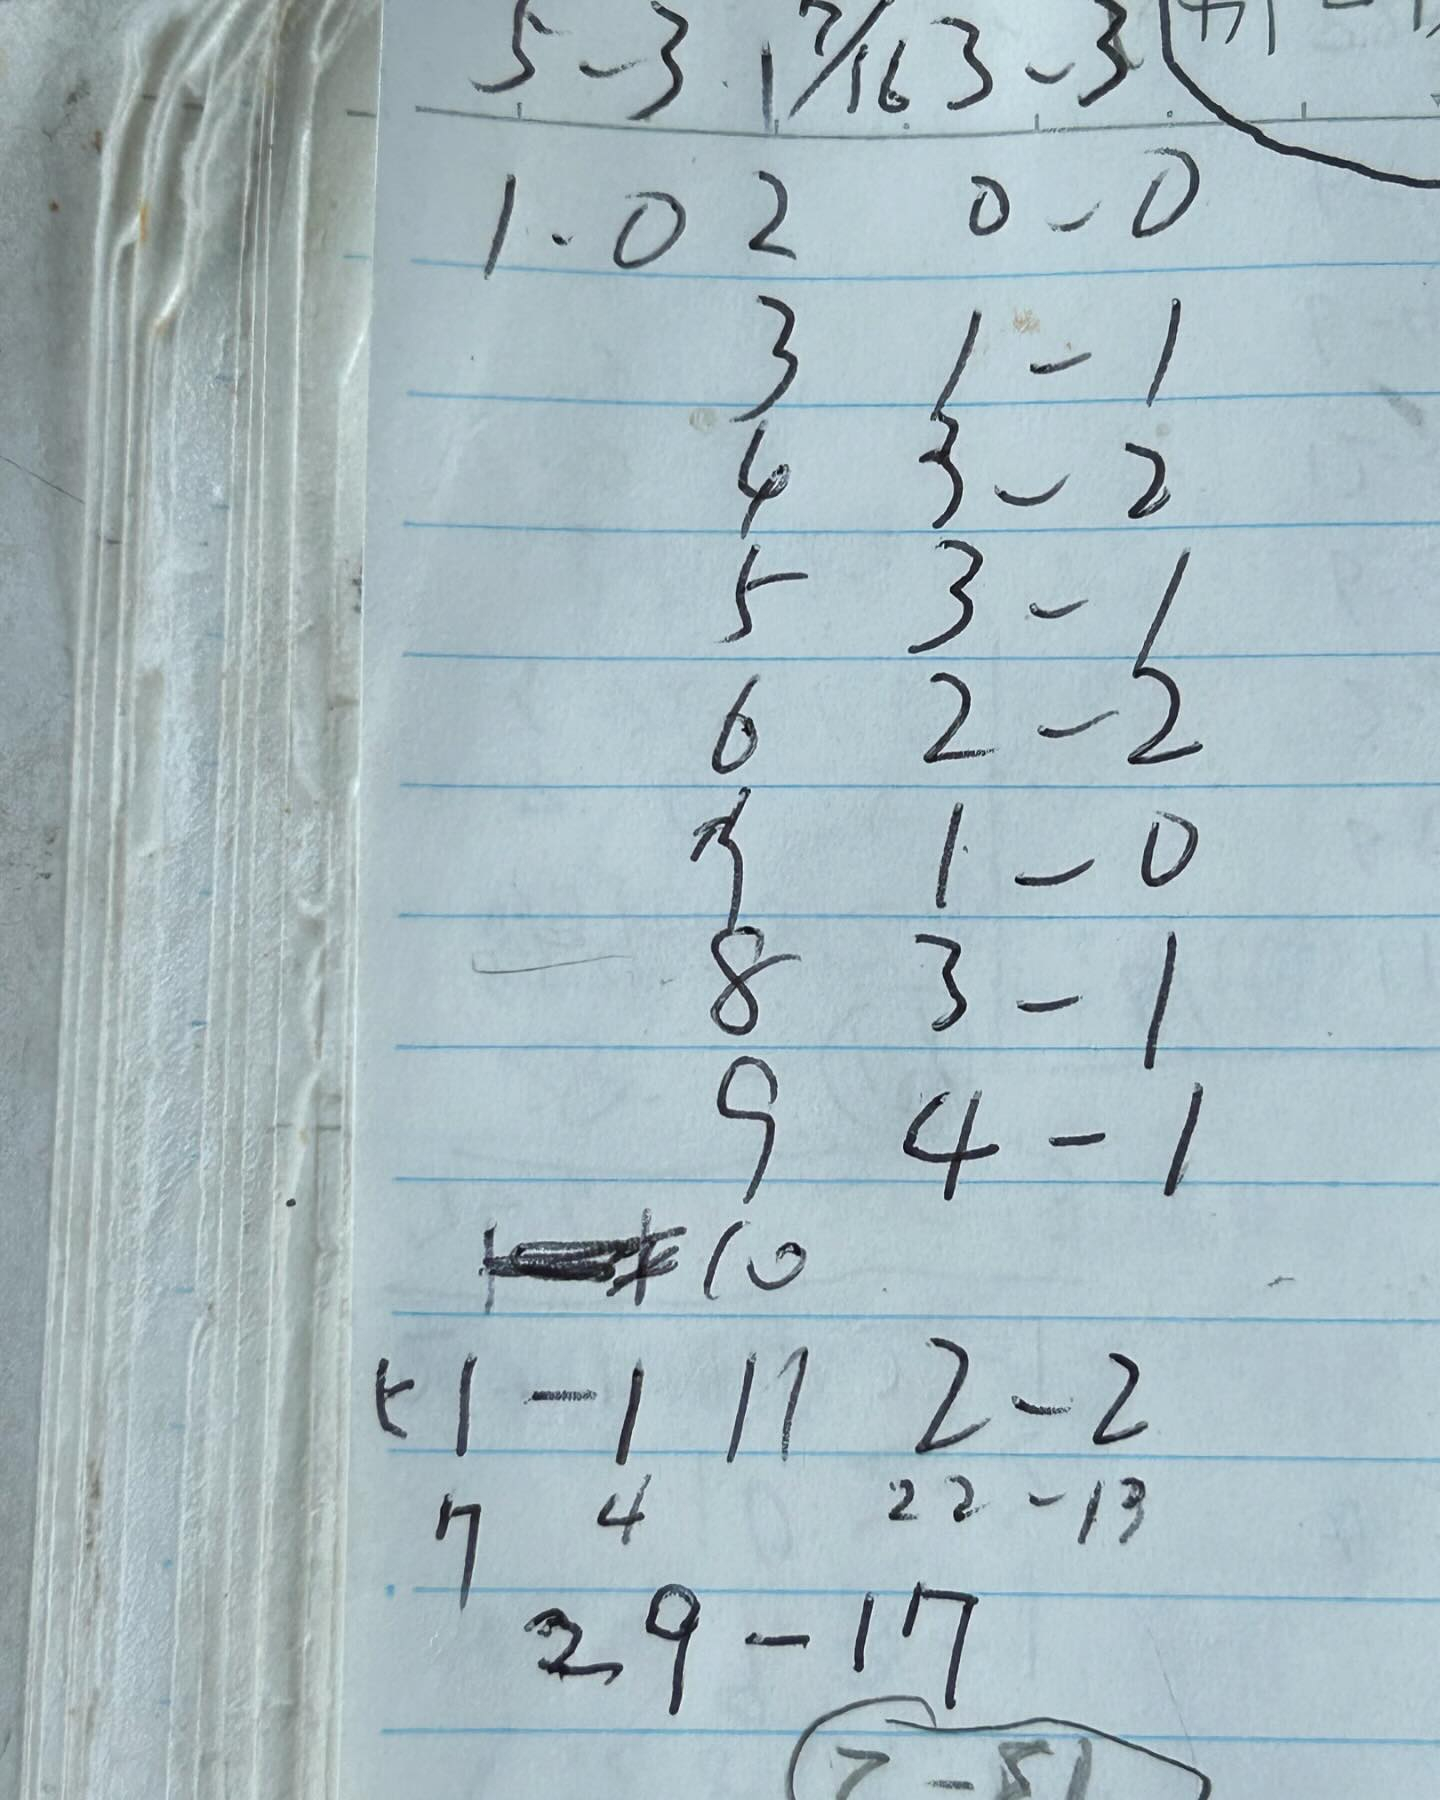 5-3 1 7/16 3-3
1-0 2 0-0
3 1-1
4 3-2
5 3-1
6 2-2
7 1-0
8 3-1
9 4-1
10
1-1 11 2-2
7 4 22-13
29-17